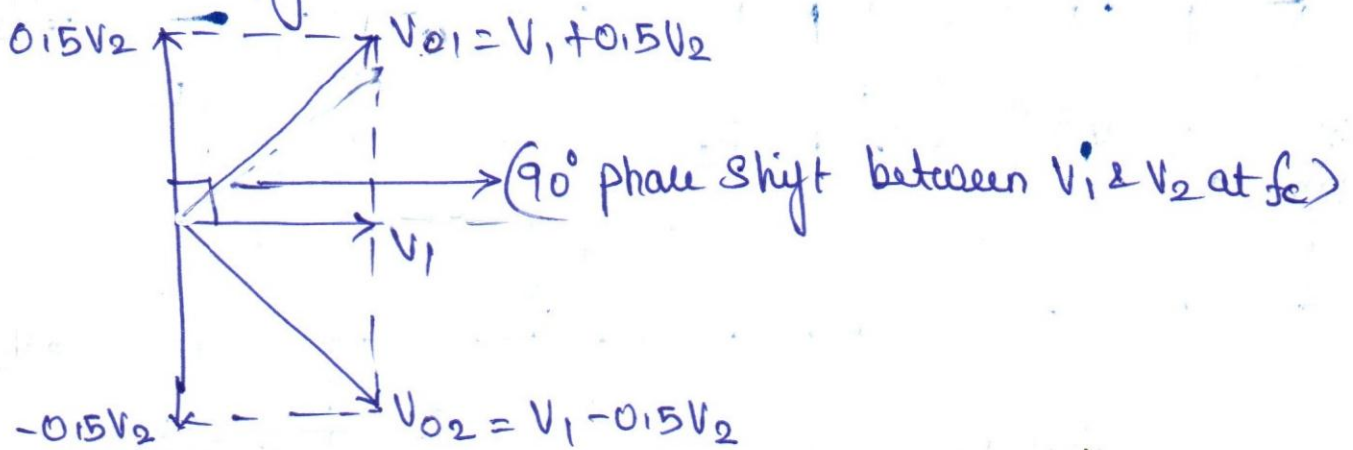 0.5V2 V01 = V1 + 0.5V2
(90° phase shift between V1 & V2 at fc)
V1
-0.5V2 V02 = V1 - 0.5V2